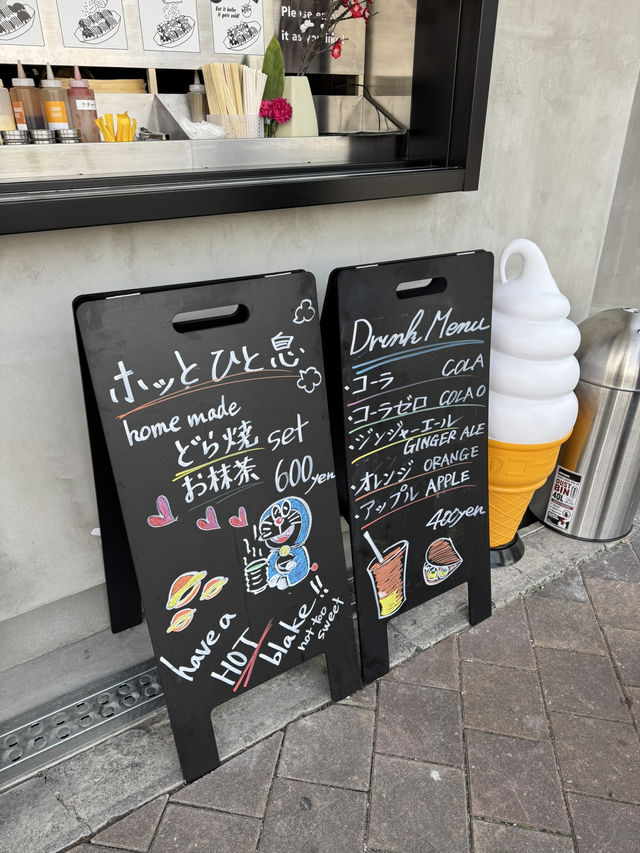 Eat it before
it gets cold!
Please en
it as you lik
ホッとひと息
home made
どら焼 set
お抹茶 600yen
have a
HOT blake!!
not too
sweet
Drink Menu
・コーラ COLA
・コーラゼロ COLA 0
・ジンジャーエール
GINGER ALE
・オレンジ ORANGE
・アップル APPLE
400yen
DUST
BIN
40L